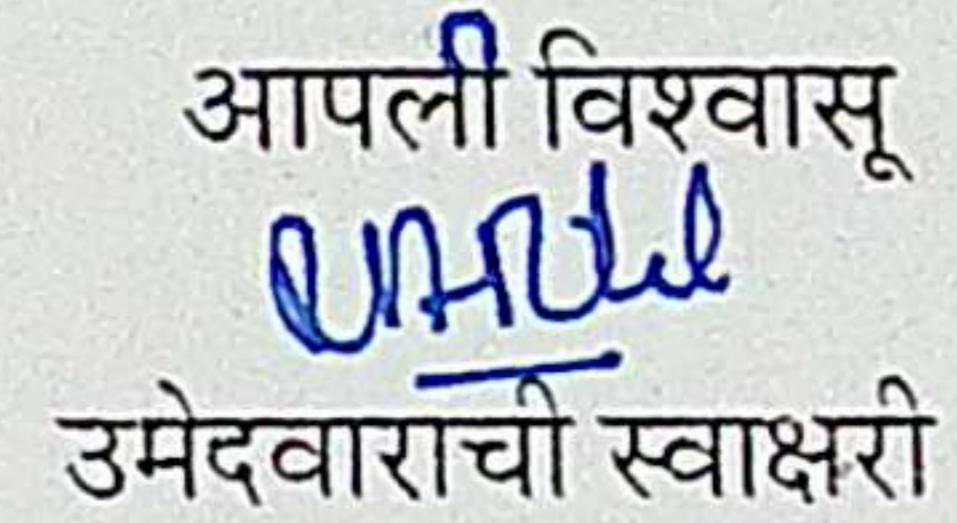 आपली विश्वासू
उमेदवाराची स्वाक्षरी